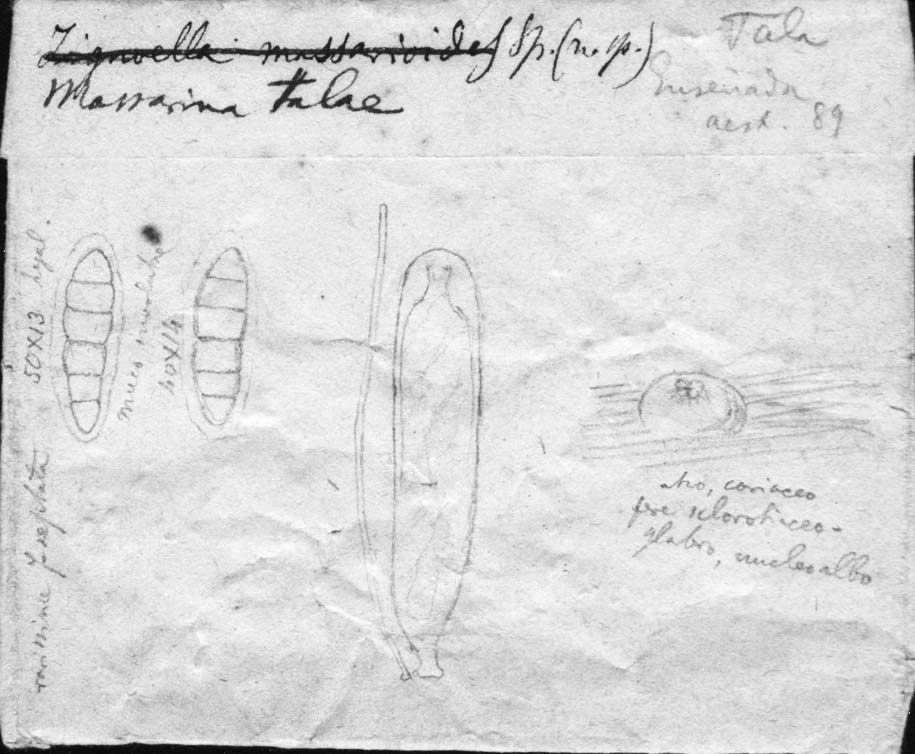 Zignoella massarioides Sp. (n. sp.)
Massarina Talae
Tala
Ensenada
aest. 89
50X13 hyal.
muco involutae
40X14
rarissime 7-septata
atro, coriaceo
fere sclerotiaceo-
glabro, nucleo albo